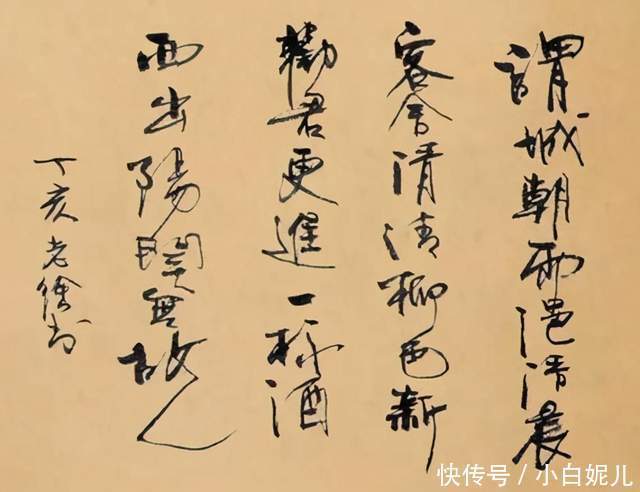 謂城朝雨浥清晨
客舍清清柳色新
勸君更進一杯酒
西出陽關無故人
丁亥老徐书
快传号/小白妮儿